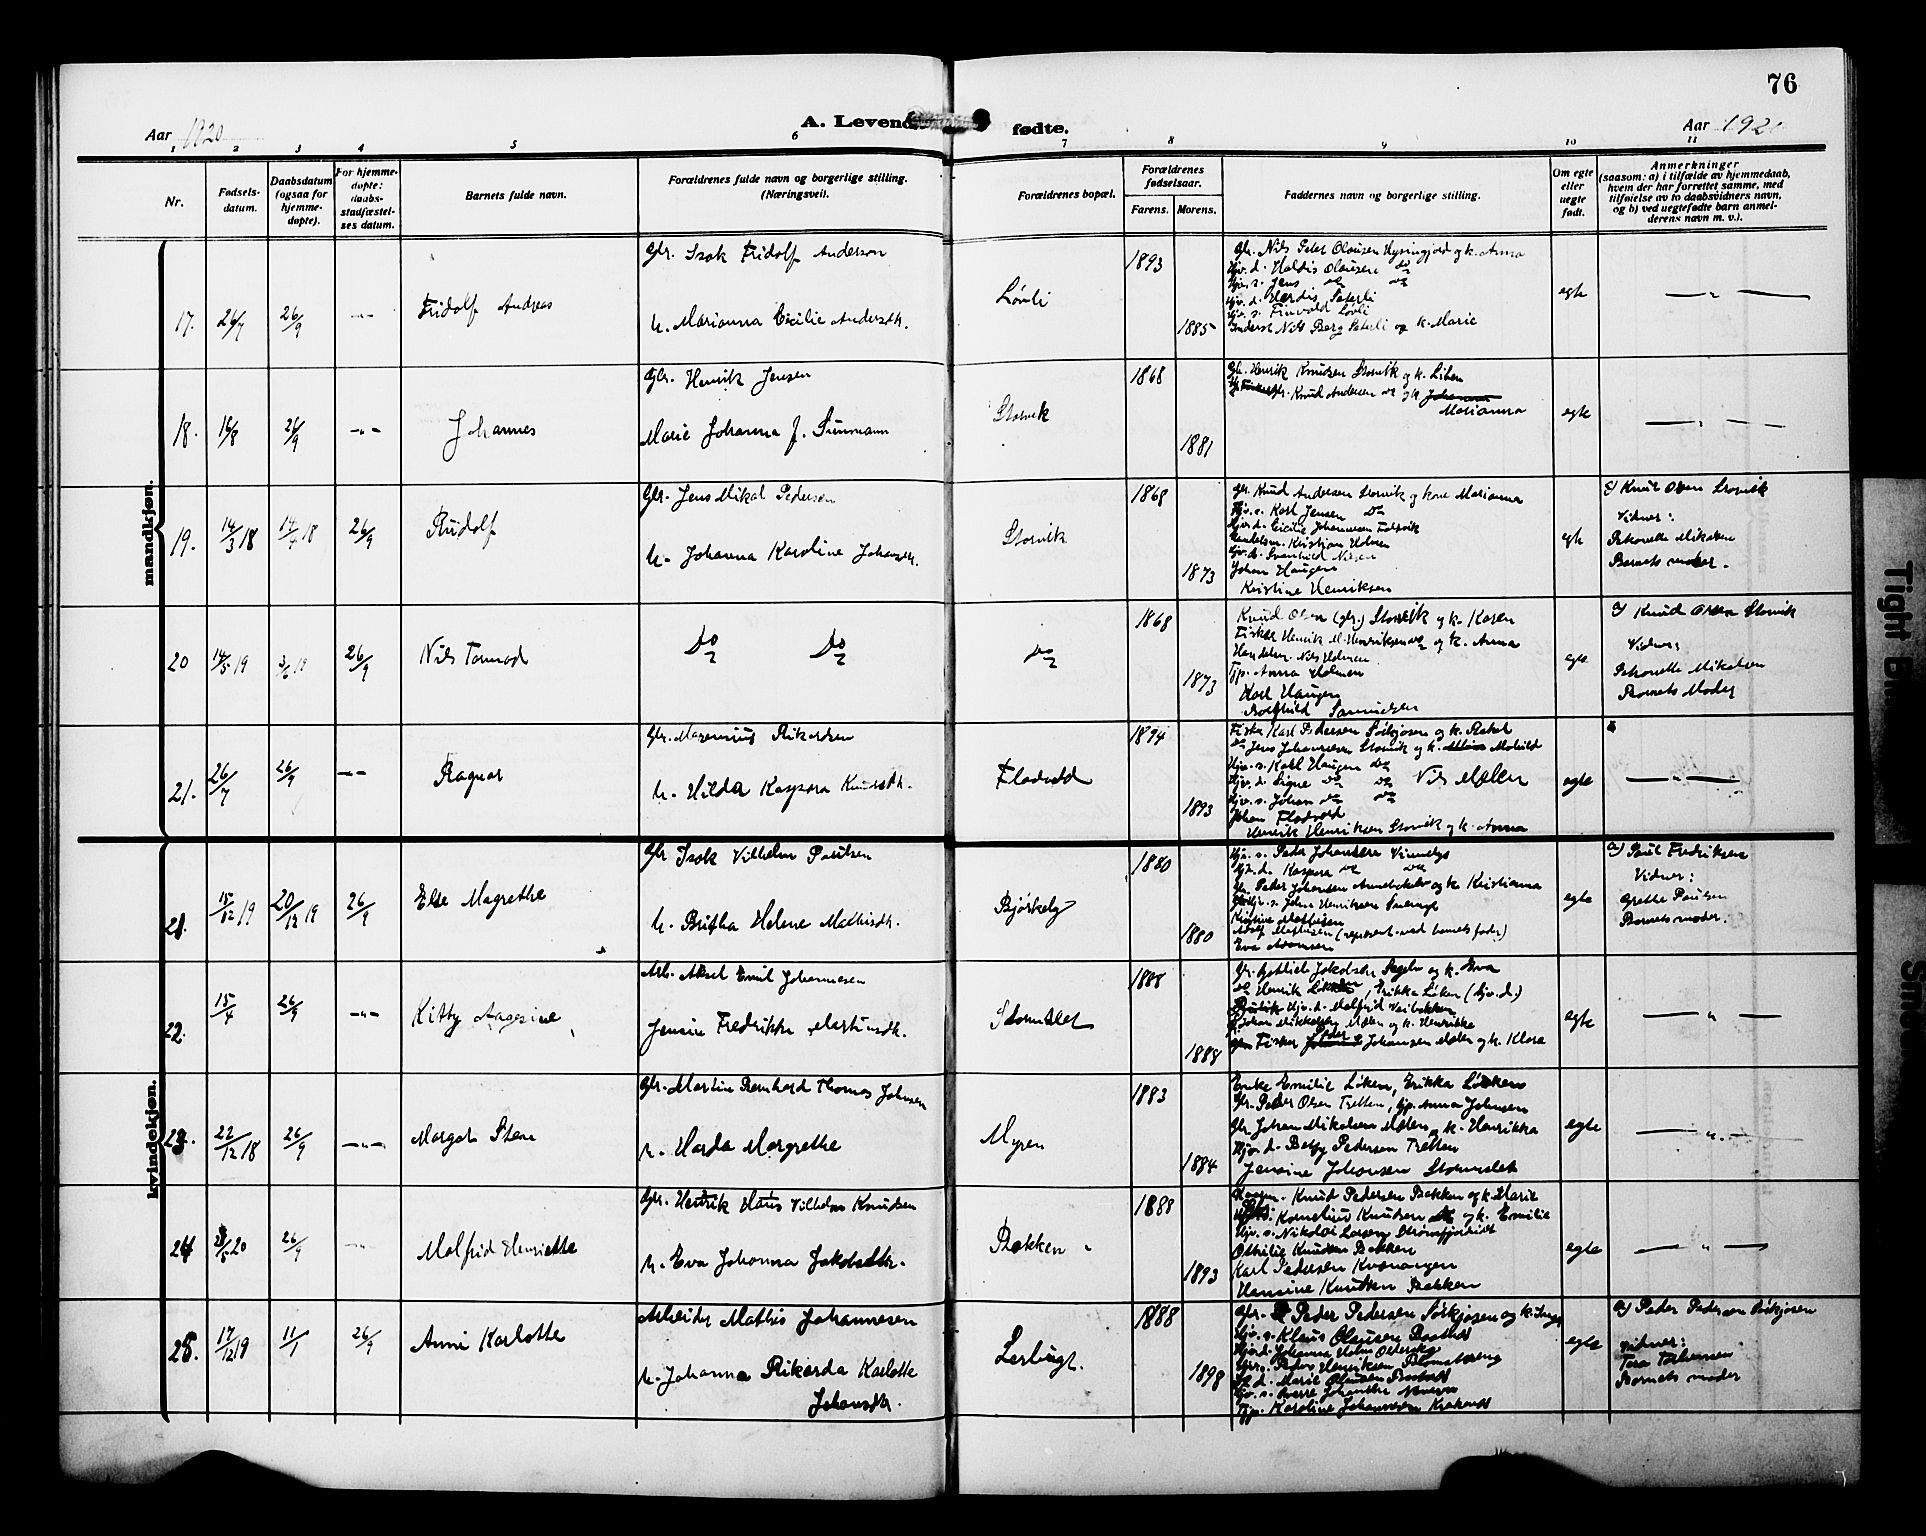 76
Aar 1920
A. Levende
fødte.
Aar 192
1 2 3 4 5 6 7 8 9 10 11
Nr.
Fødsels-
datum.
Daabsdatum
(ogsaa for
hjemme-
døpte).
For hjemme-
døpte:
daabs-
stadfæstel-
ses datum.
Barnets fulde navn.
Forældrenes fulde navn og borgerlige stilling.
(Næringsveil).
Forældrenes bopæl.
Forældrenes
fødselsaar.
Farens. Morens.
Faddernes navn og borgerlige stilling.
Om egte
eller
uegte
født.
Anmerkninger
(saasom: a) i tilfælde av hjemmedaab,
hvem der har forrettet samme, med
tilføielse av to daabsvidners navn,
og b) ved uegtefødte barn anmel-
derens navn m. v.).
mandkjøn.
17. 26/7 26/9 -"- Fridolf Andreas
Gbr. Isak Fridolf Anderson
h. Marianna Cicilie Andersdtr.
Løvli
1893
1885
Gbr. Nils Peter Olausen Hysingjord og k. Anna
Ugv. d. Haldis Olausen do
Ugv. s. Jens do do
Ugv. d. Herdis Sæterli
Ugv. s. Finvold Løvli
Inderst Nils Berg Sæterli og k. Marie
egte
— " —
18. 16/8 26/9 -"- Johannes
Gbr. Henrik Jensen
Marie Johanna f. Simmann
Storvik
1868
1881
Gbr. Henrik Knudsen Storvik og k. Liben
Gbr. Knud Andersen do og k.
Marianna
egte
— " —
19. 14/3 18 14/4 18 26/9 Rudolf
Gbr. Jens Mikal Pedersen
h. Johanna Karoline Johansdtr.
Storvik
1868
1873
Gbr. Knud Andersen Storvik og kone Marianna
Ugv. s. Karl Jensen do
Ugv. d. Cicilie Johannesen
Handelsm. Kristian Holmen
Ugv. d. Svanhild Nilsen
Johan Haugen
Kristine Henriksen
egte
a) Knut Olsen Storvik
Vidner:
Petronelle Mikalsen
Barnets moder.
20 14/5 19 3/6 19 26/9 Nils Tormod
Do Do
Do
1868
1873
Knud Olsen (gbr.) Storvik og k. Karen
Fisker Henrik M. Henriksen do og k. Anna
Handelsm. Nils Holmen
Tjp. Anna Holmen
Karl Haugen
Bolghild Samuelsen
egte
a) Knud Olsen Storvik
Vidner:
Petronelle Mikalsen
Barnets Moder
21. 26/7 26/9 -"- Ragnar
Gbr. Magennius Rikardsen
h. Hilda Kaspara Knudsdtr.
Flatvold
1894
1893
Fisker Karl Pedersen Sørkjosen og k. Rakel
do Jens Johannesen Storvik og k. Matild
Ugv. s. Karl Haugen do
Ugv. d. Signe do do Nils Mælen
Ugv. s. Johan do do
Johan Flatvold
Henrik Henriksen Storvik og k. Anna
egte
— " —
kvindekjøn.
21. 15/12 19 20/12 19 26/9 Else Magrethe
Gbr Isak Vilhelm Paulsen
h. Britha Helene Mathisdtr.
Bjørkely
1880
1880
Ugv. s. Peder Johansen Vinnelys
Ugv. d. Kaspara do do
Gbr. Peder Johansen og k. Kristianna
Ugv. s. John Henriksen
Kristine Mathisen
Adolf Mathisen (represent. ved barnets fader)
Eva
egte
a) Paul Fredriksen
Vidner:
Grethe Paulsen
Barnets moder.
22. 15/4 26/9 -"- Kitty Aagesine
Arb. Aksel Emil Johannesen
Jensine Fredrikke Martinsdtr.
Storslet
1888
1888
Gbr. Gotlieb Jakobsen og k. Eva
do Henrik Løken, Erikka Løken (Ugv. d.)
Ugv. d. Malfrid Veibakken
Johan Mikkelsen Mælen og k. Henrikke
Fisker Peder Johansen Mælen og k. Klara
egte
— " —
23. 22/12 18 26/9 -"- Margot Stene
Gbr. Martin Bernhard Thomas Johnsen
h. Harda Margrethe
Myren
1883
1884
Enke Emilie Løken, Erikka Løken
Gbr. Peder Olsen Tretten, tjp. Anna Johnsen
Gbr. Johan Mikalsen Mælen og k. Henrikka
Ugv. d. Betsy Pedersen Tretten
Jensine Johansen Storslet
egte
— " —
24 /5 20 26/9 -"- Malfrid Henriette
Gbr. Henrik Hans Vilhelm Knudsen
h. Eva Johanna Jakobsdtr.
Bakken
1888
1893
Knud Pedersen Bakken og k. Marie
Kornelius Knudsen do og k. Emilie
Ugv. s. Nikolai Larsen Strømfjordeidet
Othilie Knudsen Bakken
Karl Pedersen Kvænangen
Hansine Knudsen Bakken
egte
— " —
25. 17/12 19 11/1 26/9 Anni Karlotte
Arbeider Mathis Johannesen
h. Johanna Rikarda Karlotte
Johansdtr.
1888
1898
Gbr. Peder Pedersen Sørkjosen og k. Inga
Ugv. s. Klaus Olausen Baststad
Ugv. d. Johanna
Peder Henriksen
Ugv. d. Marie Olausen
Ugv. s. Sverre Johansen
Tjp. Karoline Johannesen
egte
a) Peder Pedersen Sørkjosen
vidner:
Barnets moder
Tight Bin